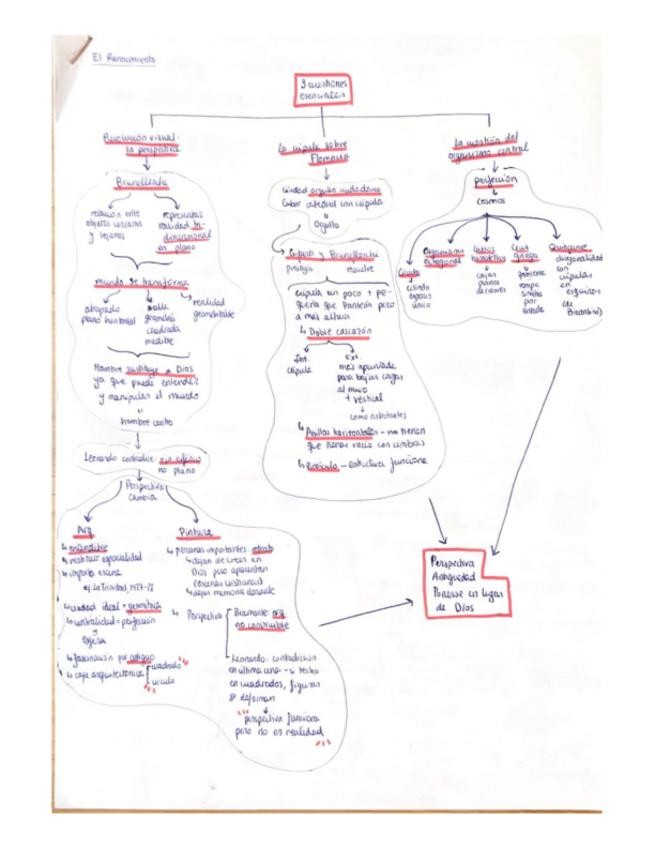 El Renacimiento
3 cuestiones
esenciales
Revolución visual:
la perspectiva
Brunelleschi
relación entre
objetos cercanos
y lejanos
representar
realidad tri-
dimensional
en plano
mundo se transforma
atrapado
plano horizontal
malla
geométrica
cuadrada
medible
realidad
geometrizable
Hombre sustituye a Dios
ya que puede entender
y manipular el mundo
hombre centro
Leonardo contradice: ojo esférico
no plano
Perspectiva
cambia
Arq
espacialidad
importa escena
ej. La Trinidad, 1427-28
ciudad ideal = geometría
centralidad = perfección
y
esfera
fascinación por antiguo
caja arquitectónica
cuadrado
círculo
Pintura
personas importantes: retrato
dejan de creer en
Dios pero aparentan
(escenas cristianas)
dejar memoria
Perspectiva
Bramante: arq
no construible
Leonardo: contradicción
en última cena - si techo
en cuadrados, figuras
se deforman
"perspectiva funciona
pero no es realidad"
La cúpula sobre
Florencia
Ciudad orgullo ciudadano
Cubrir catedral con cúpula
Orgullo
Brunelleschi
prestigio
resolver
Cúpula un poco + pe-
queña que Panteón pero
a más altura
Doble cascarón
Int.
cúpula
Ext.
más apuntada
para bajar cargas
al muro
+ vertical
como arbotantes
Anillos horizontales - no tienen
que llenar vacío con cimbras
estructura funcione
La cuestión del
organismo central
perfección
cosmos
círculo
único
Organismo
octogonal
Cruz
griega
rompe
por
Quincunce
diagonalidad
con
cúpulas
en
esquinas
(de
Bizantino)
Perspectiva
Antigüedad
Ponerse en lugar
de Dios